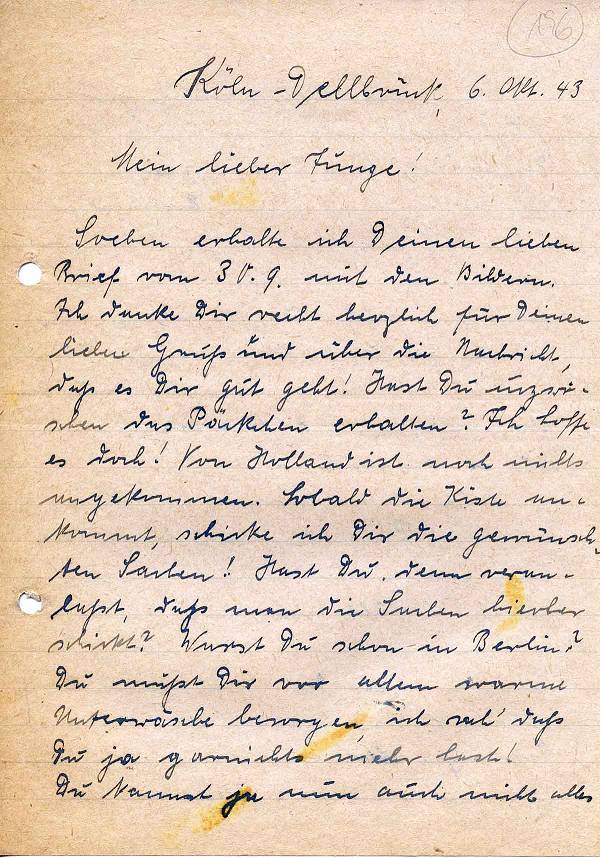 196
Köln-Dellbrück, 6. Okt. 43
Mein lieber Junge!
Soeben erhalte ich Deinen lieben
Brief vom 30. 9. mit den Bildern.
Ich danke Dir recht herzlich für Deinen
lieben Gruß und über die Nachricht,
daß es Dir gut geht! Hast Du inzwi-
schen das Päckchen erhalten? Ich hoffe
es doch! Von Holland ist noch nichts
angekommen. Sobald die Kiste an-
kommt, schicke ich Dir die gewünsch-
ten Sachen! Hast Du, denn veran-
laßt, daß man die Sachen hierher
schickt? Warst Du schon in Berlin?
Du mußt Dir vor allem warme
Unterwäsche besorgen, ich daß
Du ja garnichts mehr hast!
Du kannst ja nun auch nicht alles